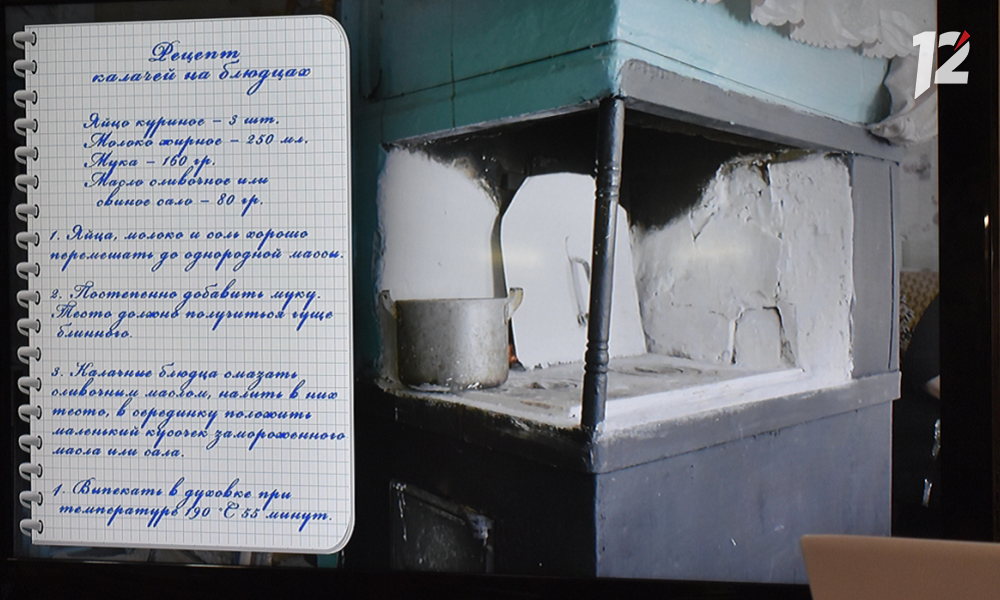 12
Рецепт
калачей на блюдцах
Яйцо куриное – 3 шт.
Молоко жирное – 250 мл.
Мука – 160 гр.
Масло сливочное или
свиное сало – 80 гр.
1. Яйца, молоко и соль хорошо
перемешать до однородной массы.
2. Постепенно добавить муку.
Тесто должно получиться гуще
блинного.
3. Калачные блюдца смазать
сливочным маслом, налить в них
тесто, в серединку положить
маленький кусочек замороженного
масла или сала.
4. Выпекать в духовке при
температуре 190 °C 55 минут.